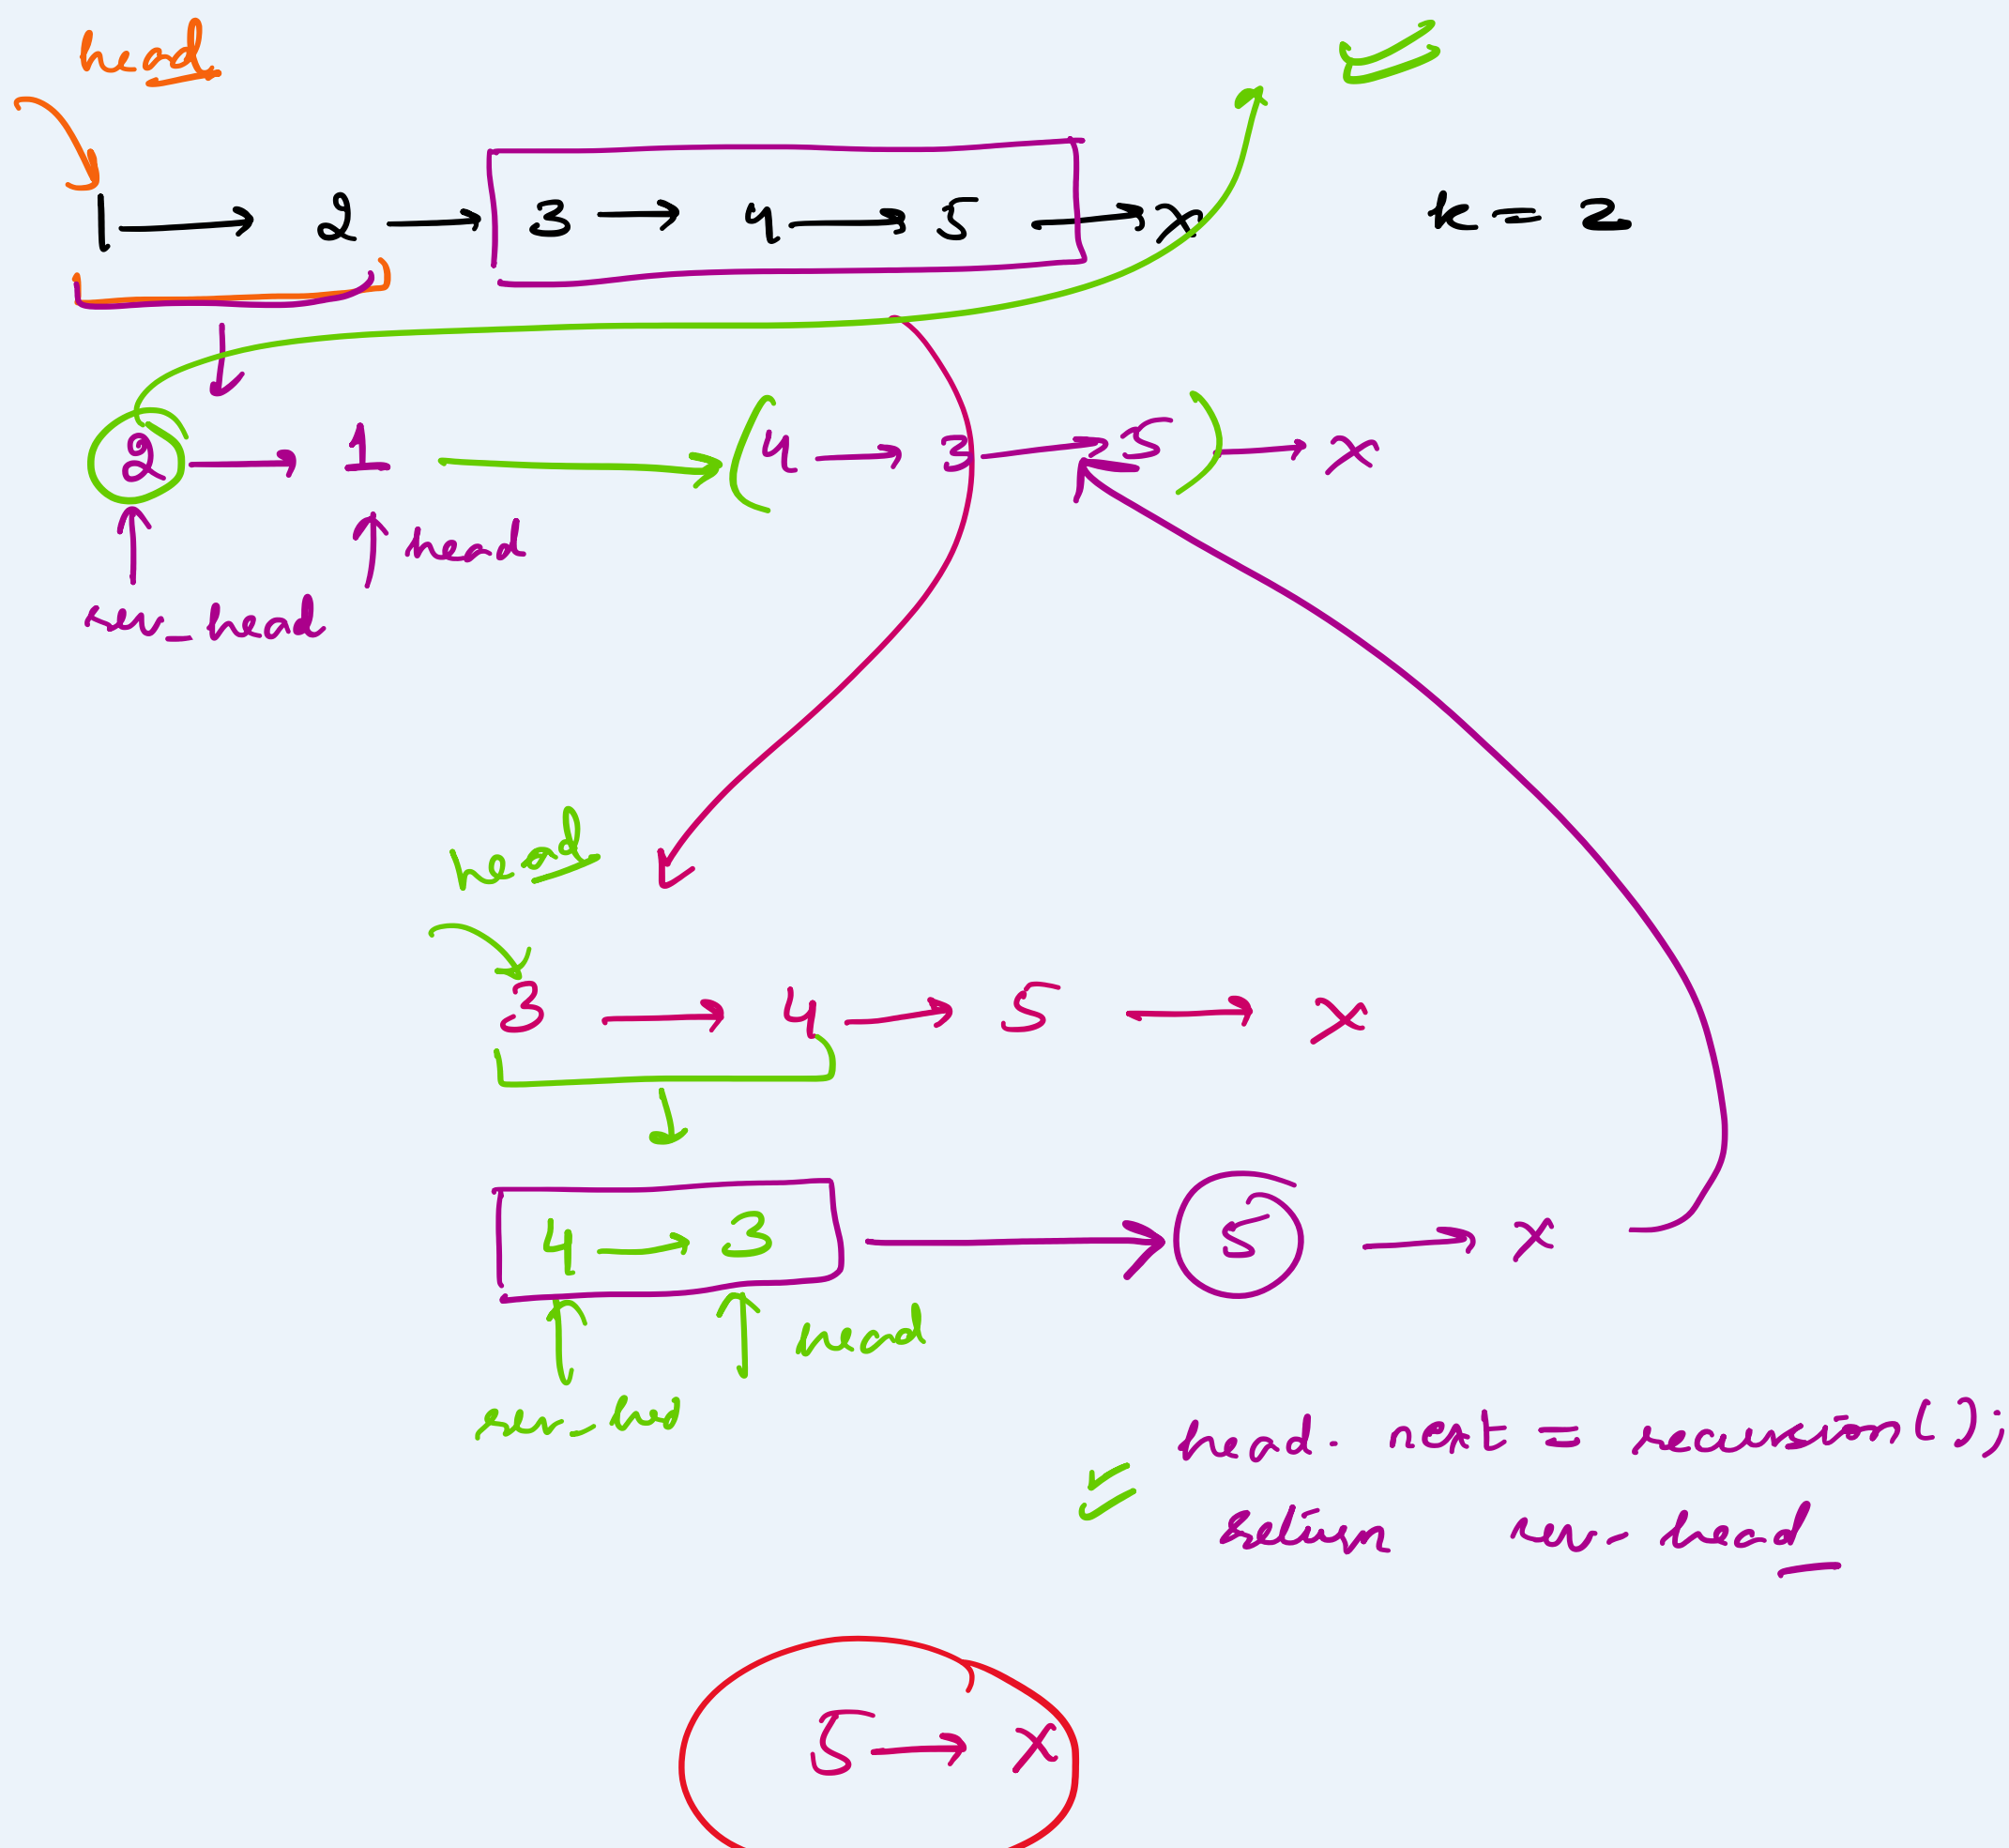 head
1 → 2 → 3 → 4 → 5 → x k = 2
2 → 1 → ( 4 → 3 → 5 ) → x
head
rev_head
head
3 → 4 → 5 → x
4 → 3 → 5 → x
head
rev_head
head. next = recursion();
Return rev_head
5 → x